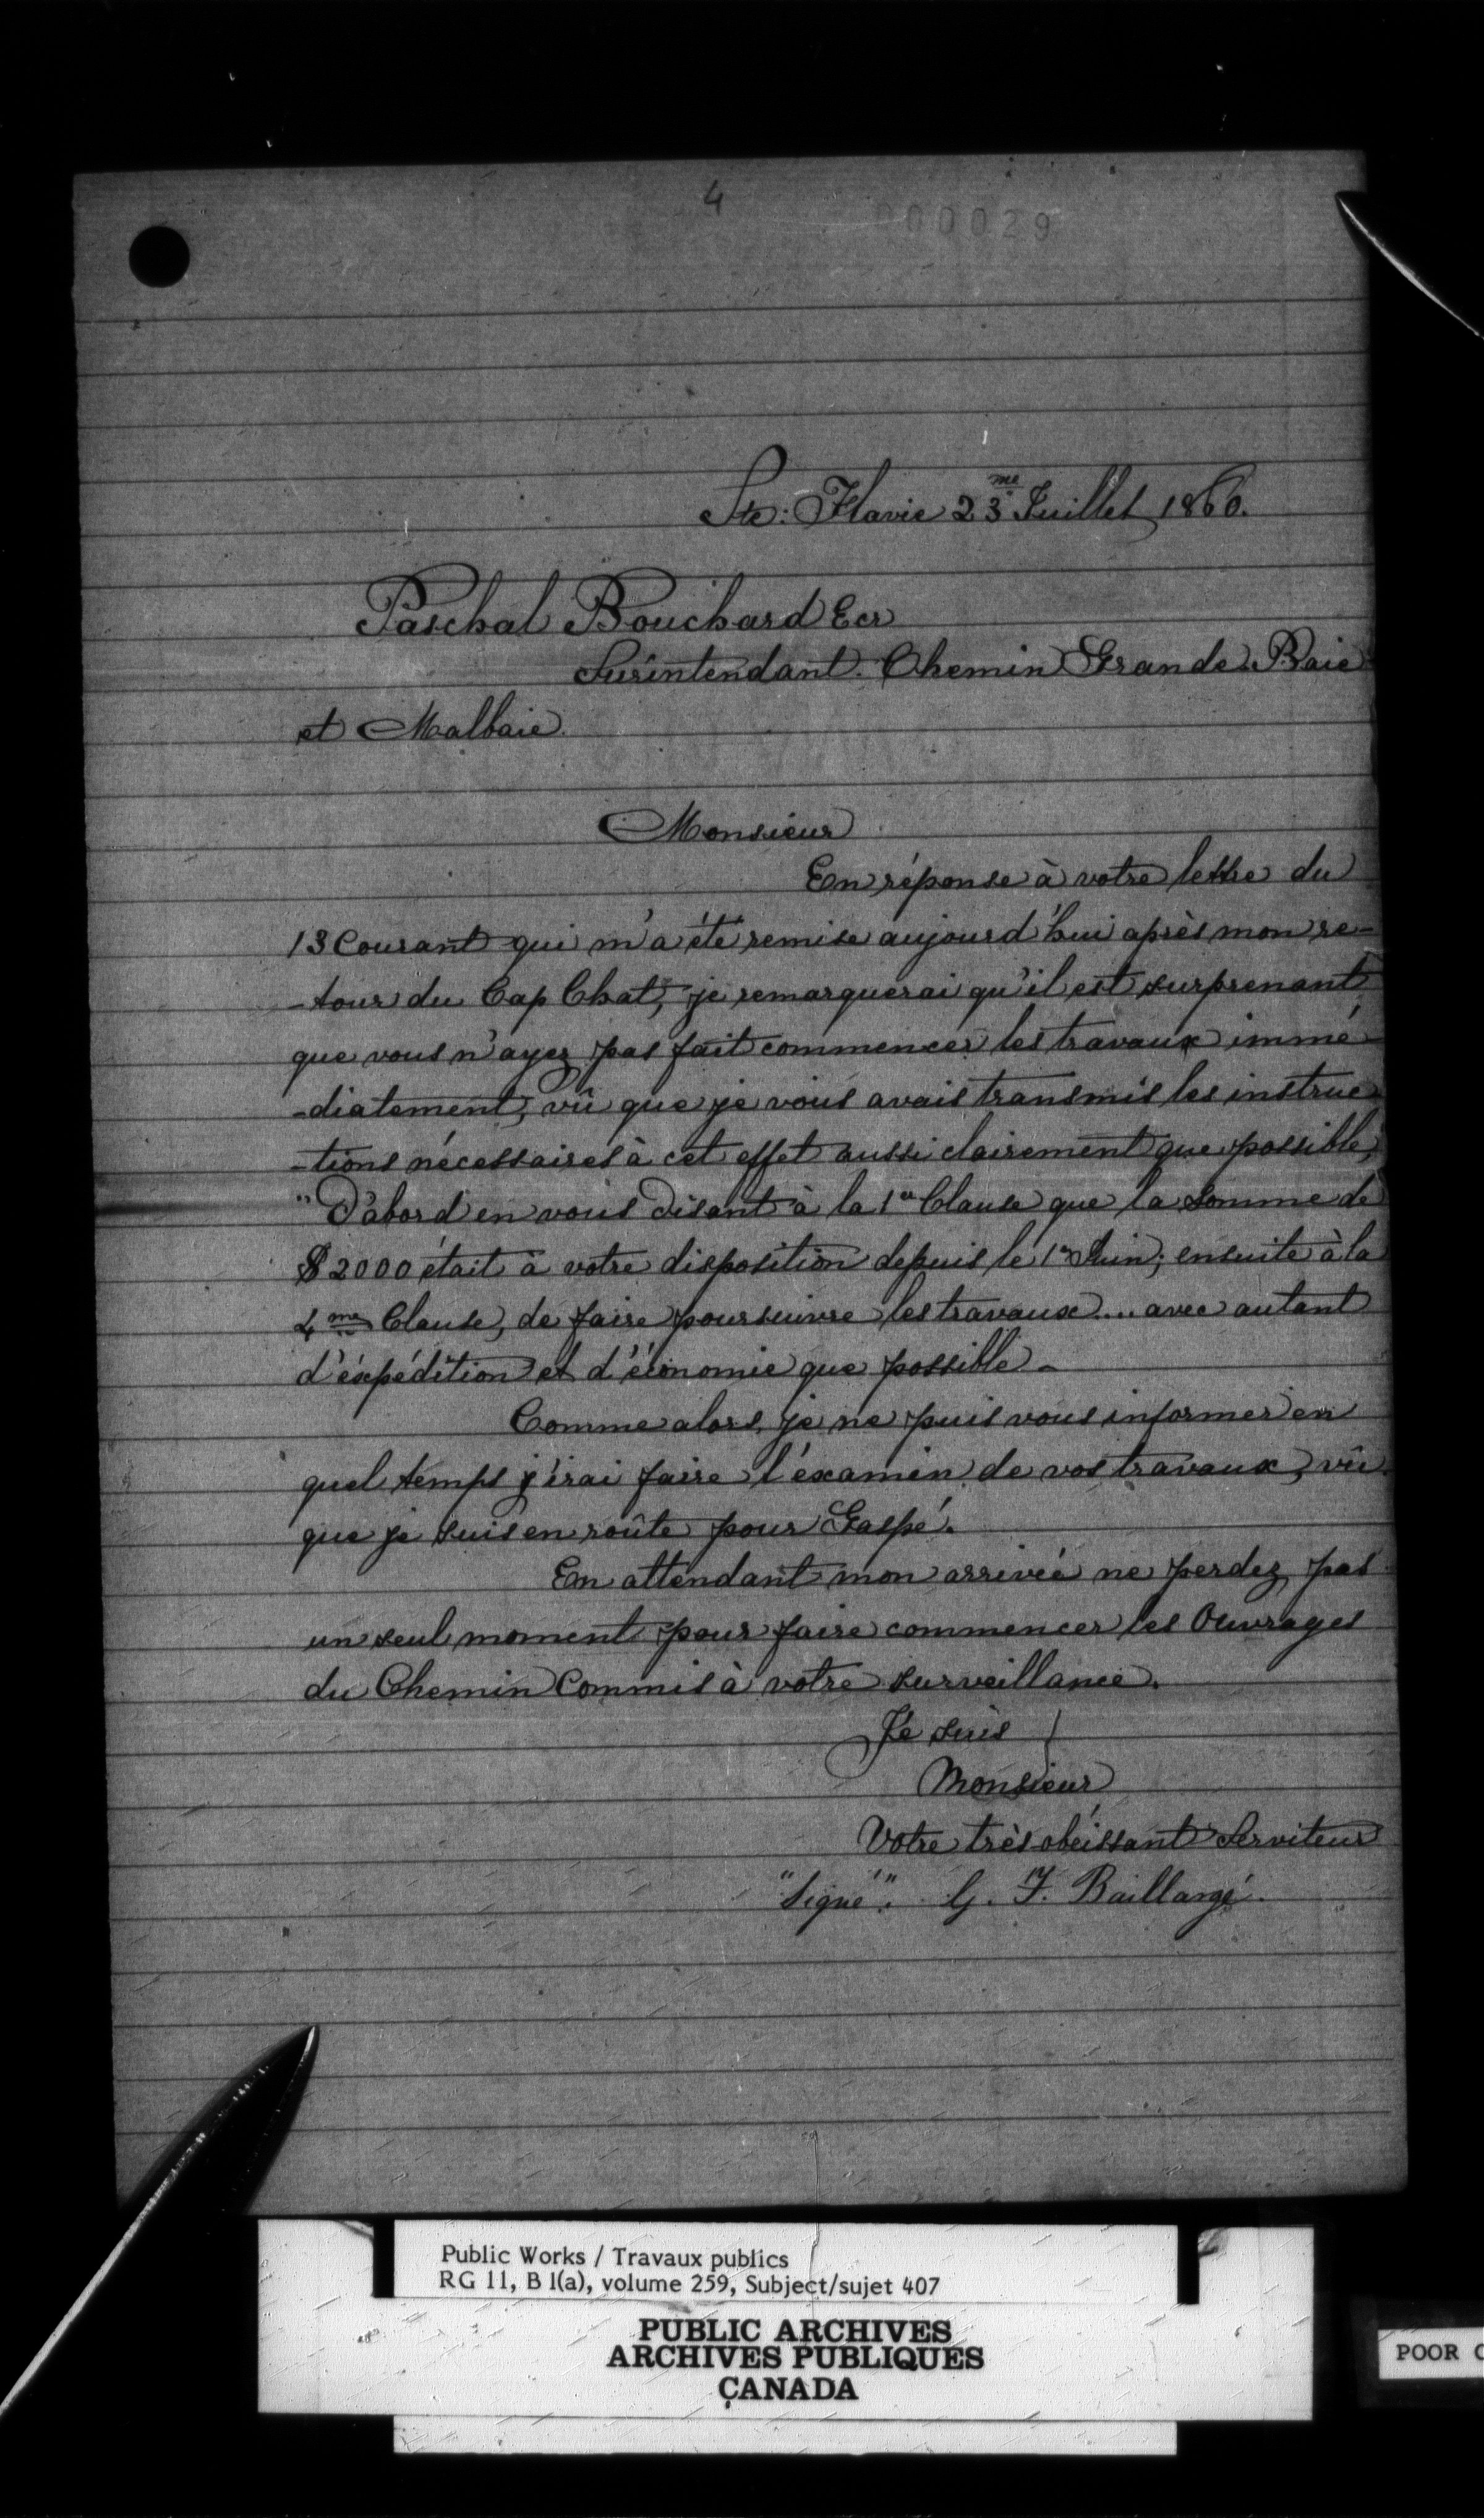 4
000029
Ste: Flavie 23me Juillet 1860.
Paschal Bouchard Ecr
Surintendant. Chemin Grande. Baie
et Malbaie.
Monsieur
En réponse à votre lettre du
13 Courant qui m'a été remise aujourd'hui après mon re-
-tour du Cap Chat, je remarquerai qu'il est surprenant
que vous n'ayez pas fait commencer les travaux immé-
-diatement, vû que je vous avais transmis les instruc-
-tions nécessaires à cet effet aussi clairement que possible,
"D'abord en vous disant à la 1re Clause que la Somme de
$2000 était à votre disposition depuis le 1er Juin; ensuite à la
4me Clause, de faire poursuivre les travaux.... avec autant
d'éxpédition et d'économie que possible -
Comme alors, je ne puis vous informer en
quel temps j'irai faire l'éxamen de vos travaux, vû
que je suis en roûte pour Gaspé.
En attendant mon arrivée ne perdez pas
un seul moment pour faire commencer les Ouvrages
du Chemin Commis à votre surveillance.
Je suis
Monsieur
Votre très obéissant Serviteur
"Signé". G. F. Baillargé.
Public Works / Travaux publics
RG 11, B 1(a), volume 259, Subject/sujet 407
PUBLIC ARCHIVES
ARCHIVES PUBLIQUES
CANADA
POOR